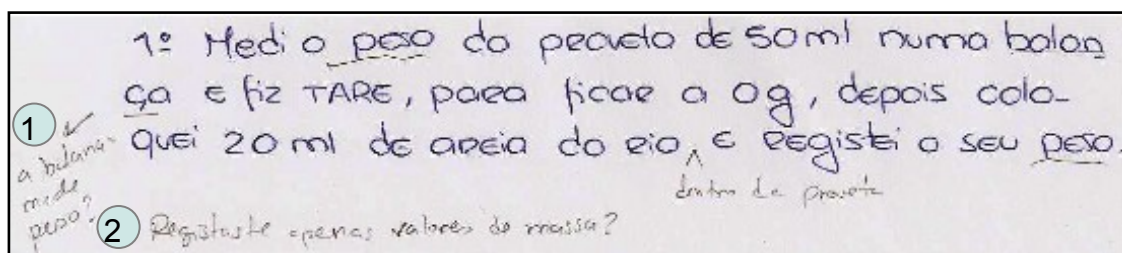 1º Medi o peso da proveta de 50 ml numa balan
ça e fiz TARE, para ficar a 0g, depois colo-
quei 20 ml de areia do rio, e Registei o seu peso.
dentro da proveta
1
a balança
mede
peso?
2 Registaste apenas valores de massa?